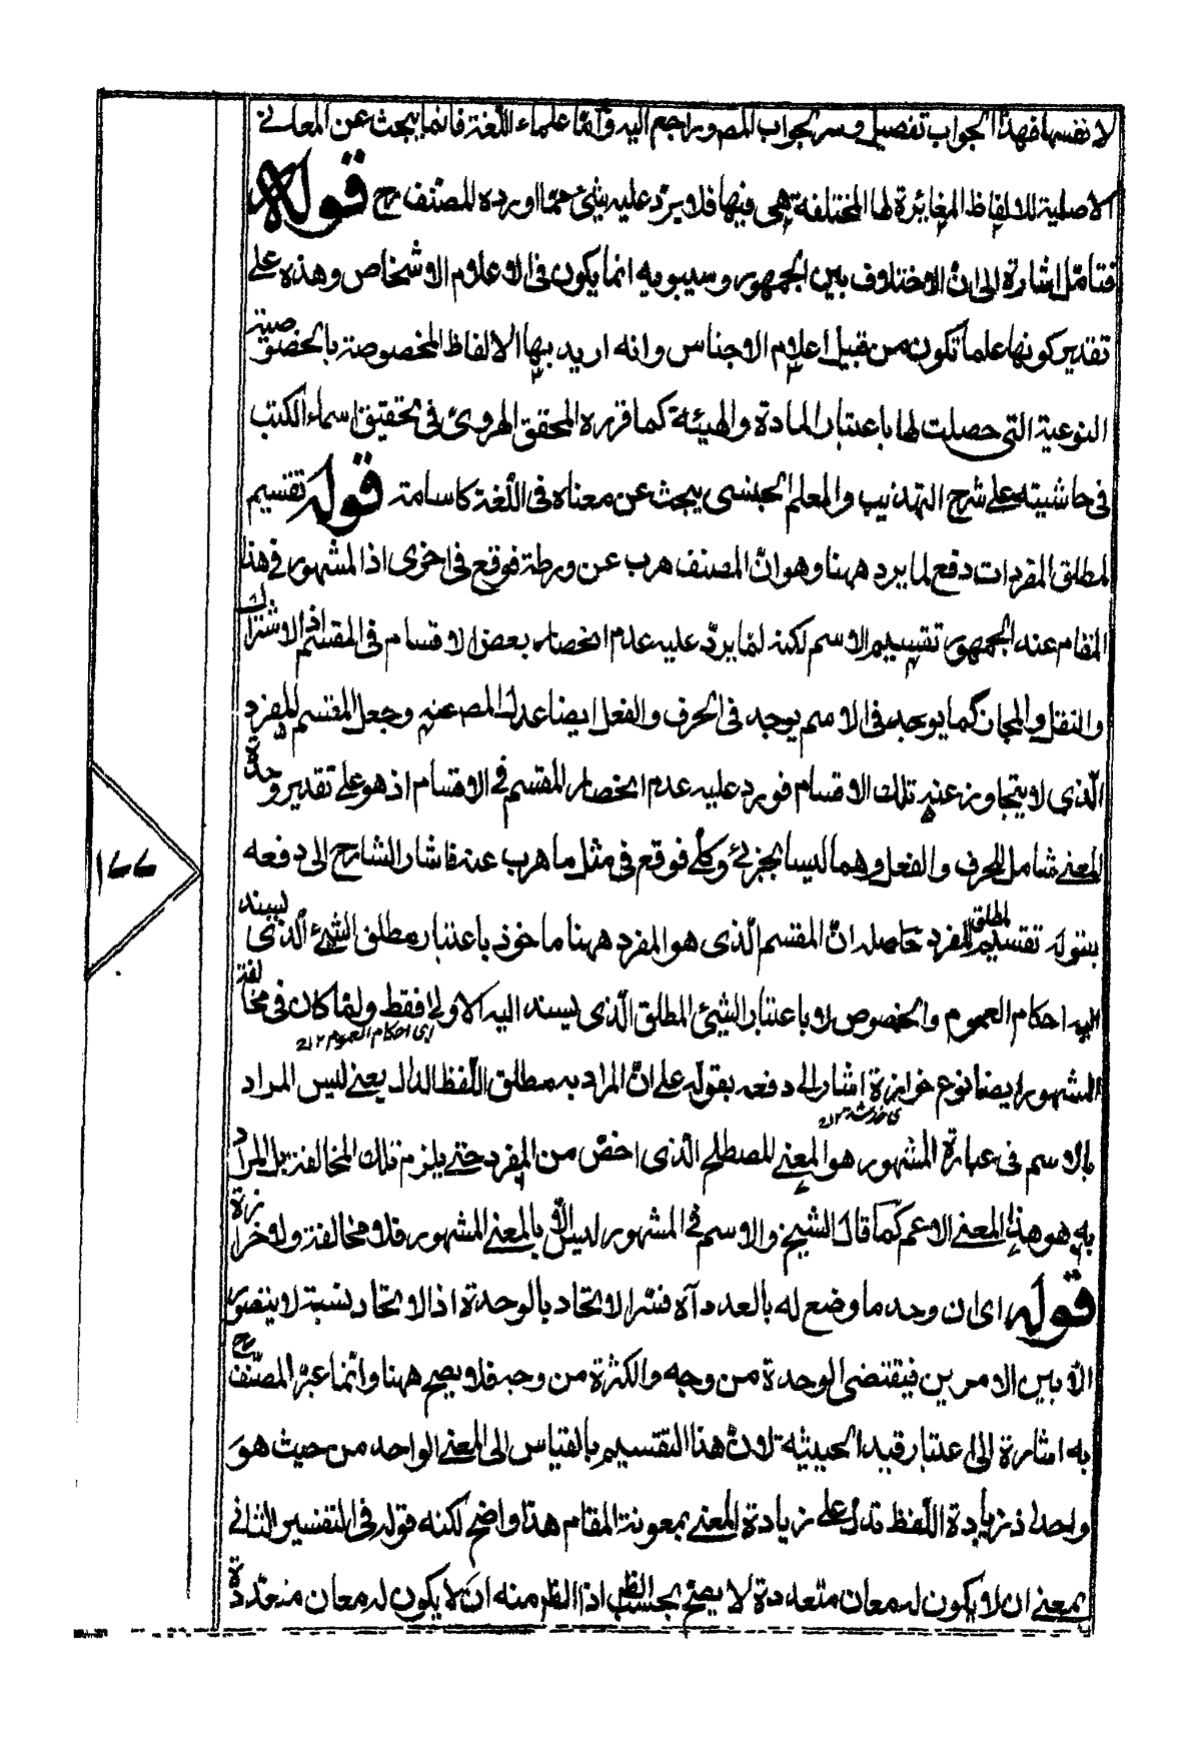 لا نفسها فهذا الجواب تفصيل وسر الجواب المصدر راجع اليه واما علماء اللغة فانما يبحث عن المعاني
الاصلية للالفاظ المغائرة لها المختلفة هي فيها فلا يرد عليه شئ مما اورده المصنف رح قوله
فتامل اشارة الى ان الاختلاف بين الجمهور وسيبويه انما يكون فى الاعلام الاشخاص وهذه على
تقدير كونها علما تكون من قبيل اعلام الاجناس وانه اريد بها الالفاظ المخصوصة بالخصوصية
النوعية التى حصلت لها باعتبار المادة والهيئة كما قرره المحقق الهروى فى تحقيق اسماء الكتب
فى حاشيته على شرح التهذيب والعلم الجنسى يبحث عن معناه فى اللغة كاسامة قوله تقسيم
لمطلق المفردات دفع لما يرد ههنا وهو ان المصنف هرب عن ورطة فوقع فى اخرى اذ المشهور فى هذا
المقام عند الجمهور تقسيم الاسم لكنه لما يرد عليه عدم انحصار بعض الاقسام فى المقسم اذ الاشتراك
والنقل والمجاز كما يوجد فى الاسم يوجد فى الحرف والفعل ايضا عدل المص عنه وجعل المقسم المفرد
الذى لا يتجاوز عنه تلك الاقسام فورد عليه عدم انحصار المقسم فى الاقسام اذ هو على تقدير وحدة
المعنى شامل للحرف والفعل وهما ليسا بجزئى وكلى فوقع فى مثل ما هرب عنه فاشار الشارح الى دفعه
بقوله تقسيم لمطلق المفرد حاصله ان المقسم الذى هو المفرد ههنا ماخوذ باعتبار مطلق الشئ الذى يسند
اليه احكام العموم والخصوص لا باعتبار الشئ المطلق الذى يسند اليه الاولى فقط ولما كان فى مخالفة
اى احكام العموم ١٢
المشهور ايضا نوع خرازة اشار الى دفعه بقوله على ان المراد به مطلق اللفظ الدال يعنى ليس المراد
بالاسم فى عبارة المشهور هو المعنى المصطلح الذى اخص من المفرد حتى يلزم تلك المخالفة بل المراد
به هو هذا المعنى الاعم كما قال الشيخ والاسم فى المشهور ليس بالمعنى المشهور فلا مخالفة ولا خرازة
قوله اى ان وحد ما وضع له بالعدد آه فسر الاتحاد بالوحدة اذ الاتحاد نسبة لا يتصور
الا بين الامرين فيقتضى الوحدة من وجه والكثرة من وجه فلا يصح ههنا وانما عبر المصنف رح
به اشارة الى اعتبار قيد الحيثية لان هذا التقسيم بالقياس الى المعنى الواحد من حيث هو
واحد اذ زيادة اللفظ تدل على زيادة المعنى بمعونة المقام هذا واضح لكنه قوله فى التفسير الثانى
بمعنى ان لا يكون له معان متعددة لا يصح بحسب الظ اذ الظاهر منه ان لا يكون له معان متعددة
١٧٧